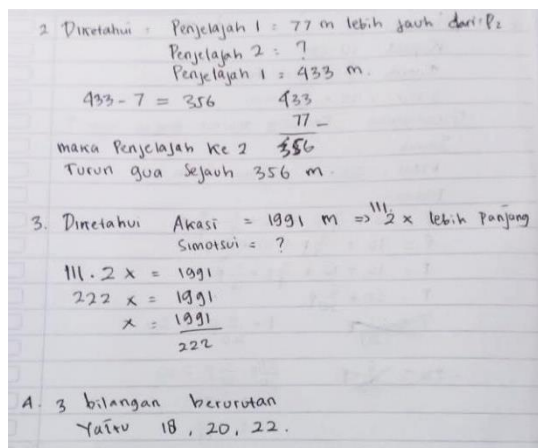 2 Diketahui : Penjelajah 1 : 77 m lebih jauh dari P2
Penjelajah 2 : ?
Penjelajah 1 : 433 m.
433 - 7 = 356
433
77 -
356
maka Penjelajah ke 2
Turun gua sejauh 356 m.
3. Diketahui Akasi = 1991 m => 111. 2 x lebih Panjang
Simotsui = ?
111 . 2 x = 1991
222 x = 1991
x = 1991
222
4. 3 bilangan berurutan
Yaitu 18, 20, 22.